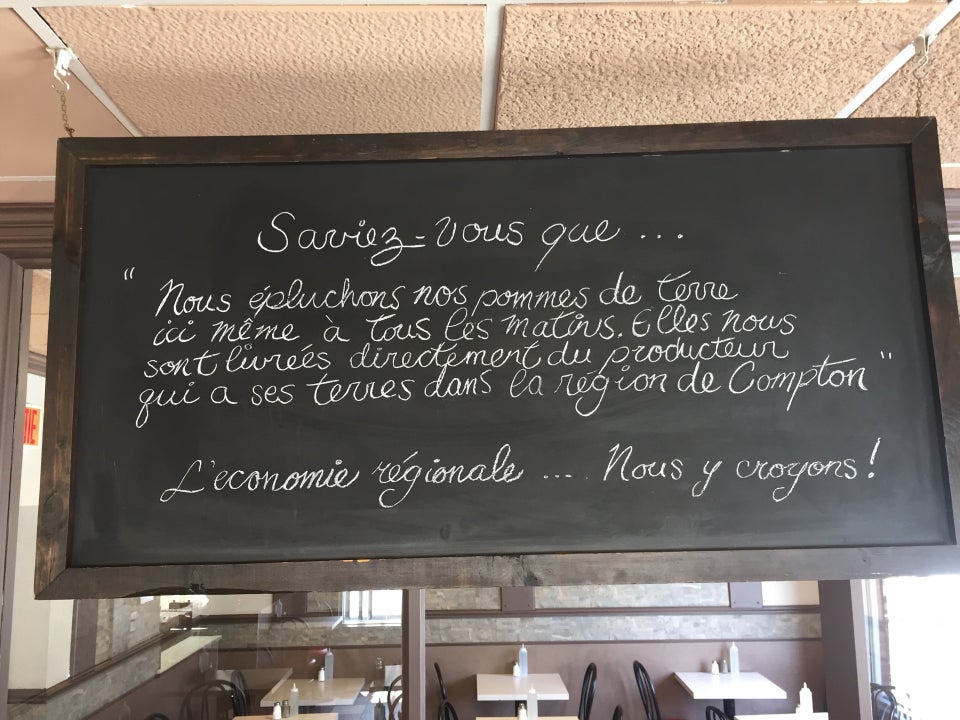 Saviez-vous que ...
" Nous épluchons nos pommes de terre
ici même à tous les matins. Elles nous
sont livrées directement du producteur
qui a ses terres dans la région de Compton "
L'economie régionale ... Nous y croyons!